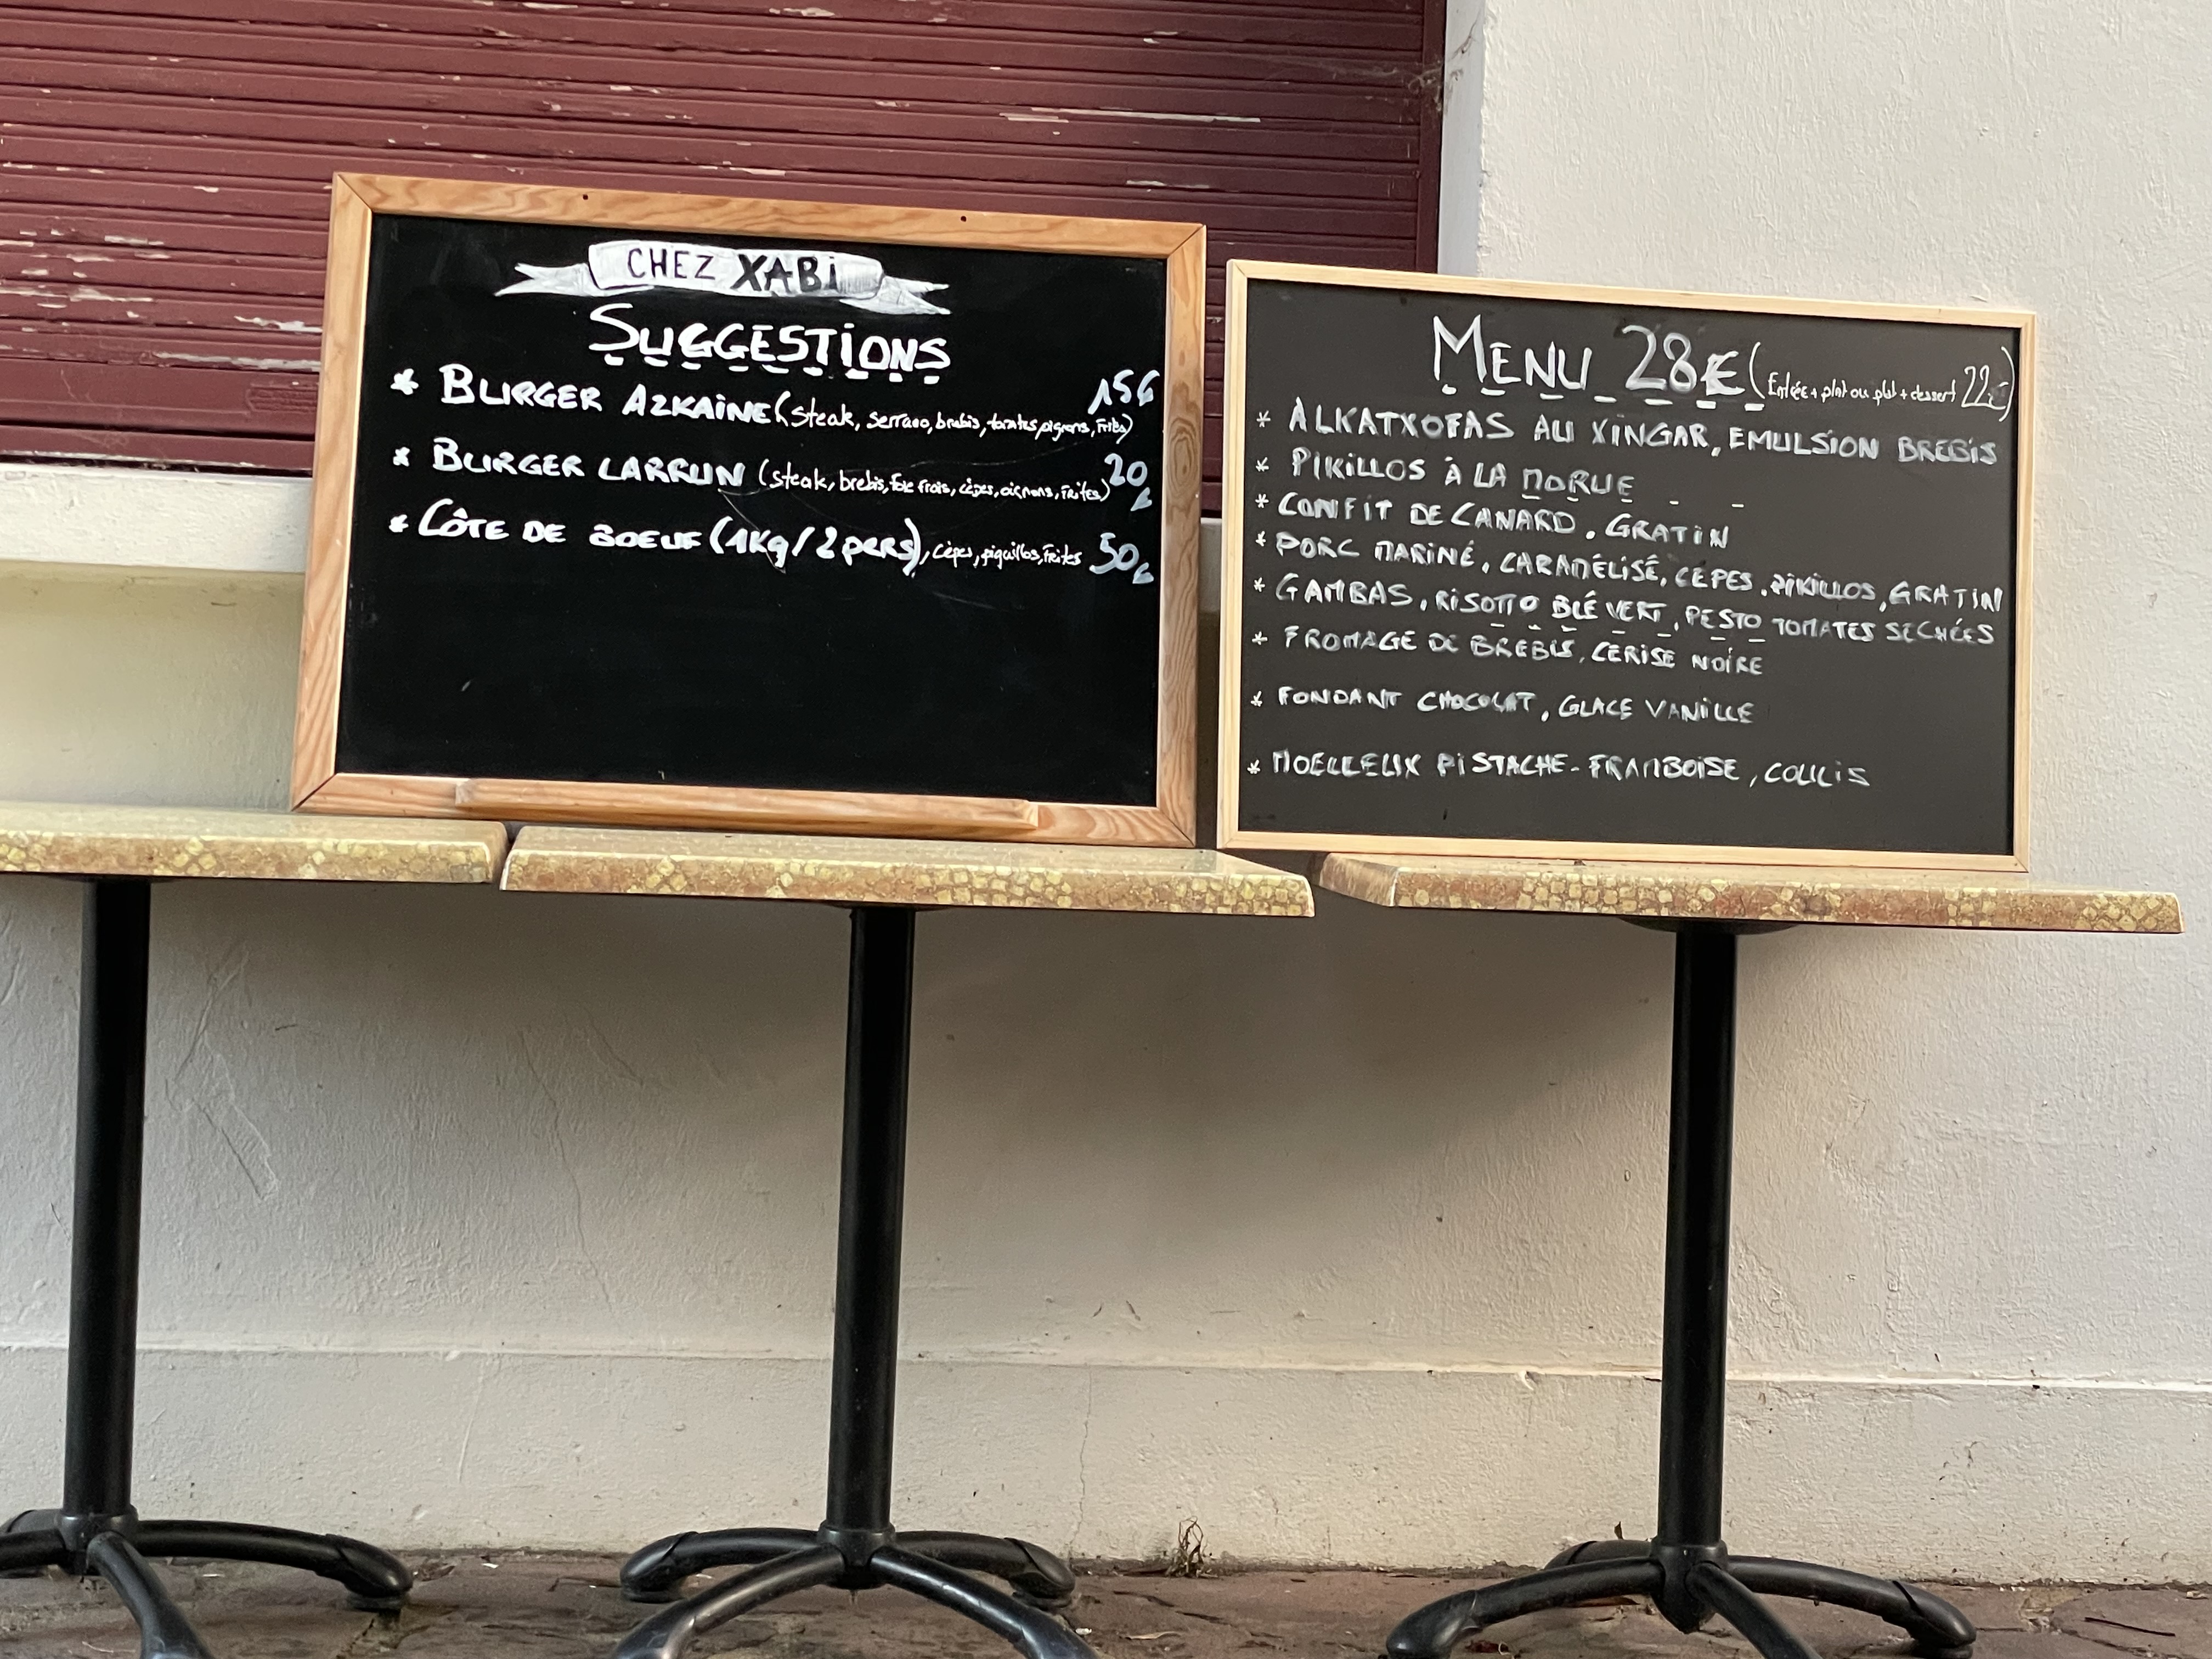 CHEZ XABi
SUGGESTiONS
* BURGER AZKAiNE (steak, serrano, brebis, tomates, pignons, frites) 15€
* BURGER LARRUN (steak, brebis, foie frais, cèpes, oignons, frites) 20€
* CÔTE DE BOEUF (1Kg/2 pers), cèpes, piquillos, frites 50€
MENU 28€ (Entrée + plat ou plat + dessert 22€)
* ALKATXOFAS AU XiNGAR, EMULSiON BREBiS
* PiKiLLOS À LA MORUE
* CONFiT DE CANARD, GRATiN
* PORC MARiNÉ, CARAMÉLiSÉ, CÈPES, PiKiLLOS, GRATiN
* GAMBAS, RiSOTTO BLÉ VERT, PESTO TOMATES SECHÉES
* FROMAGE DE BREBiS, CERiSE NOiRE
* FONDANT CHOCOLAT, GLACE VANiLLE
* MOELLEUX PiSTACHE-FRAMBOiSE, COULiS